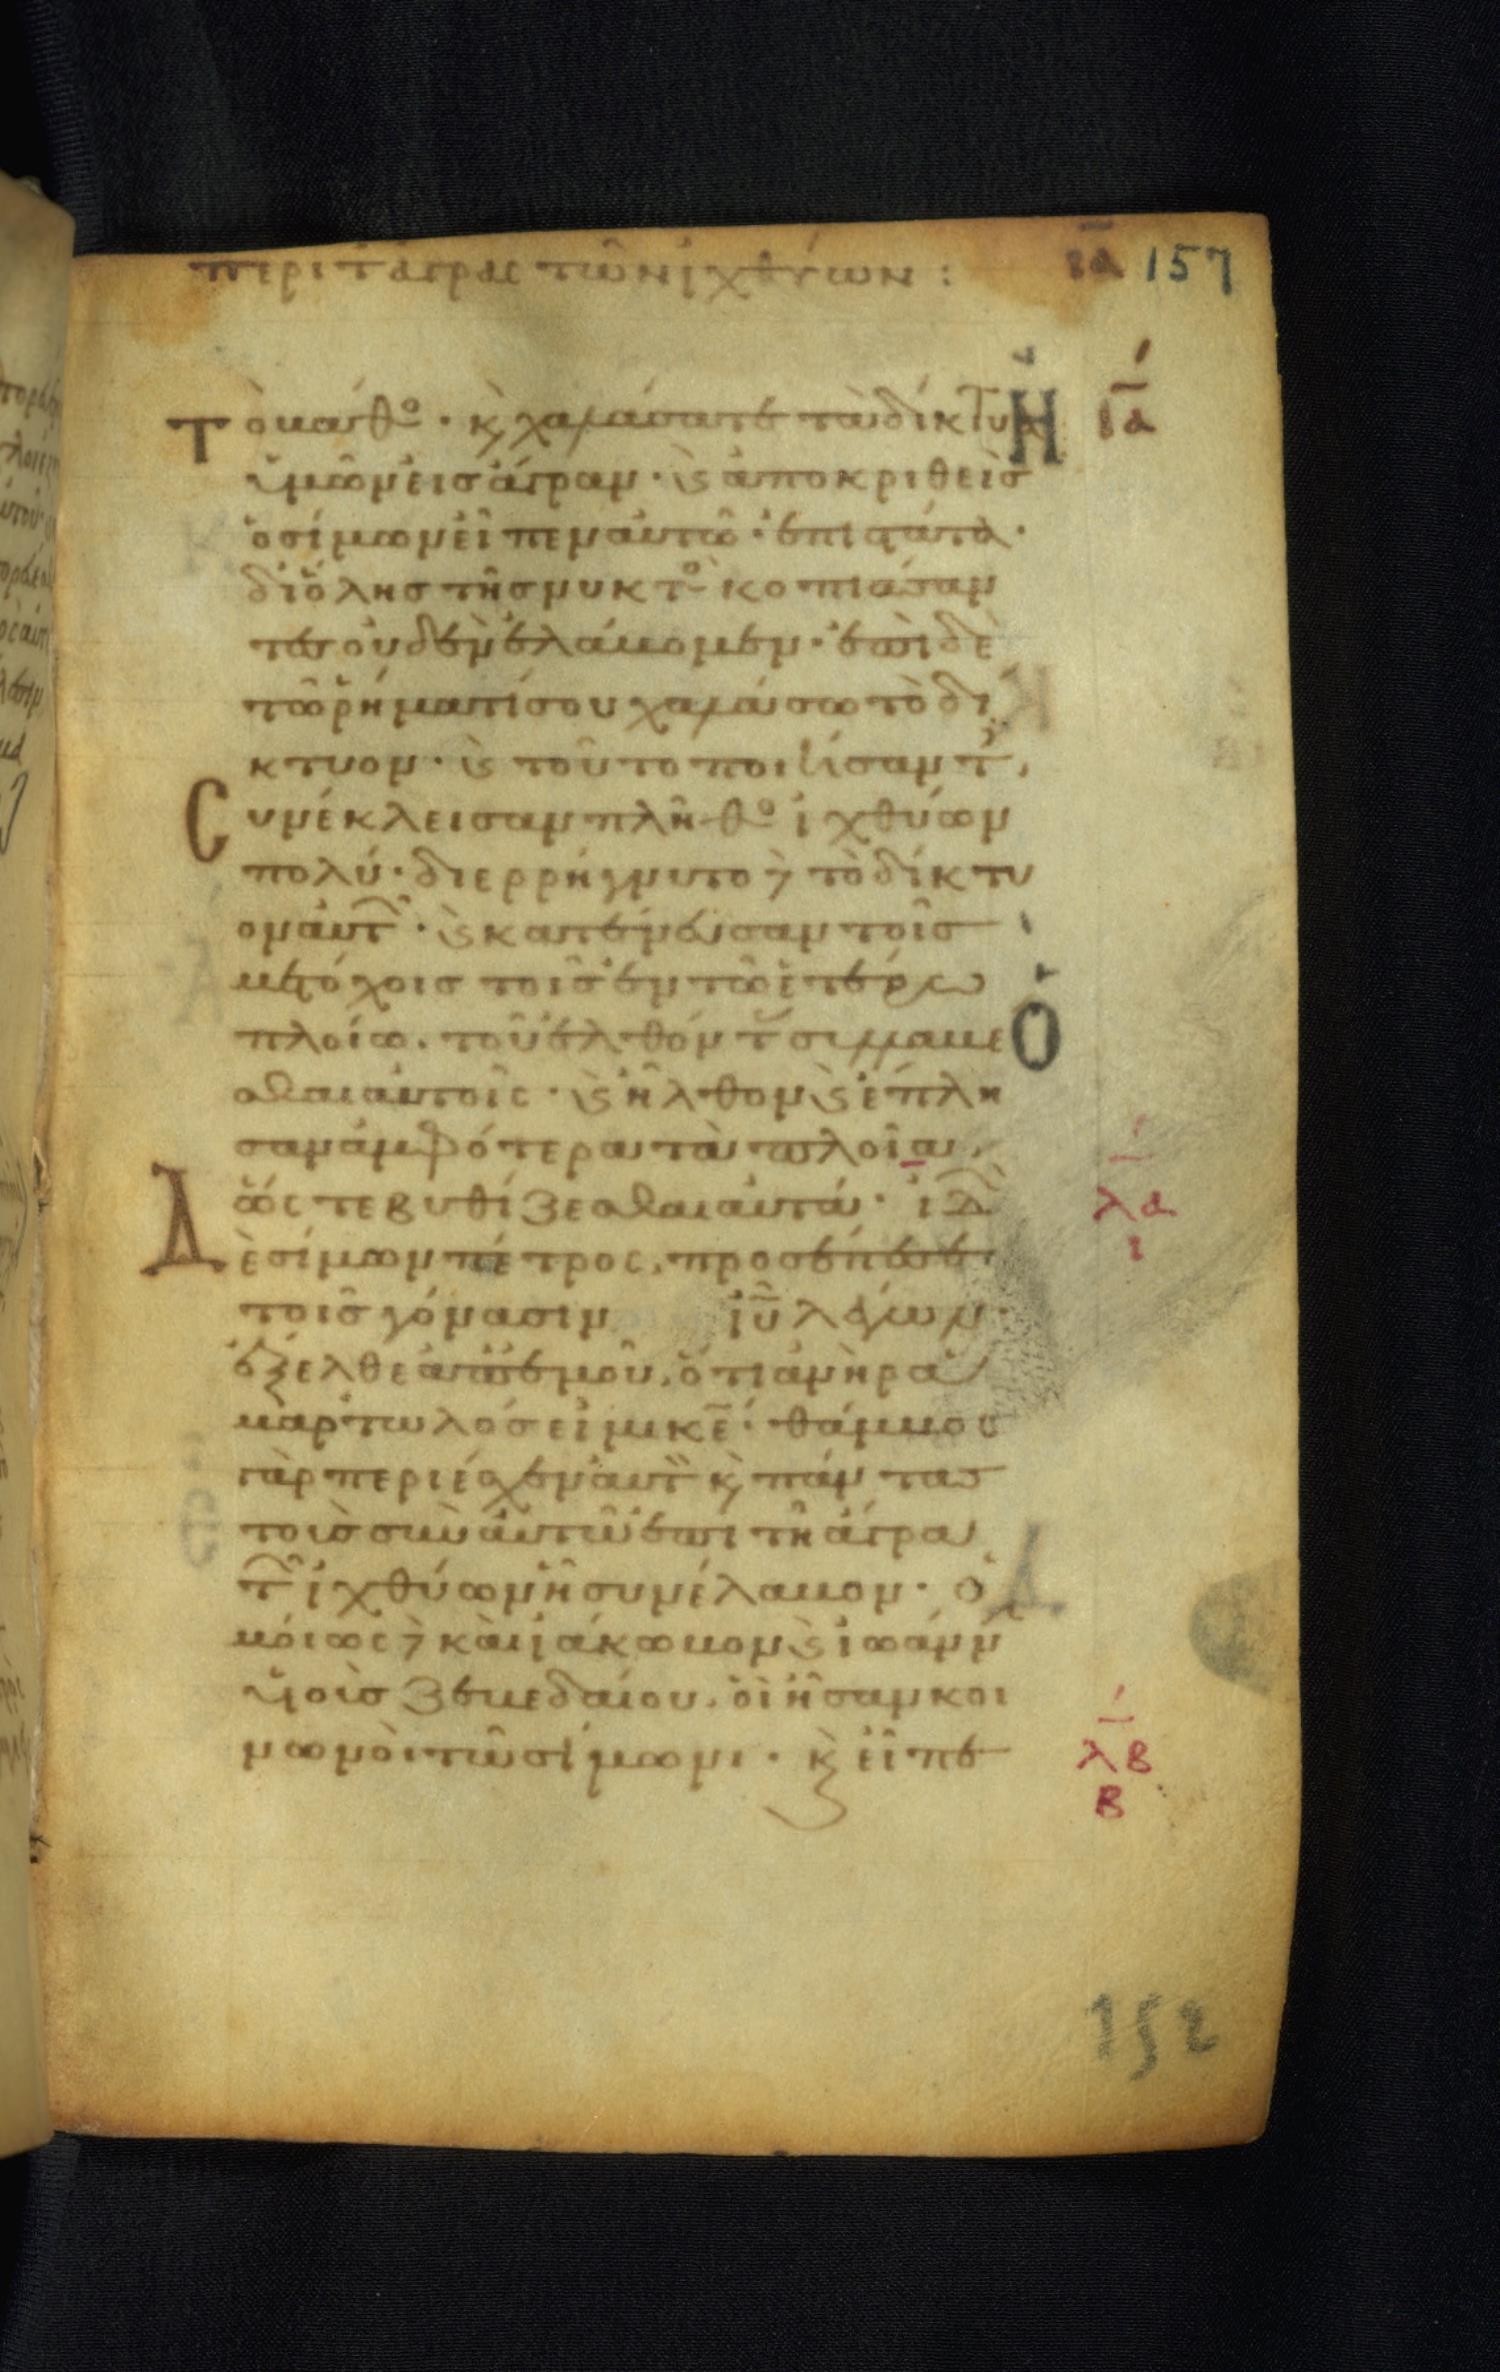 περι τ αγρας των ιχθύων : ια 157
Τὸ βάθο · κ χαλάσατε τὰ δίκτυα ια
ὑμῶν εἰς ἄγραν · ϛ ἀποκριθεὶς
ὁ σίμων εἶπεν αὐτῶ · ἐπιστάτα ·
δι ὅλης τῆς νυκτο κοπιάσαν
τες οὐδὲν ἐλάβομεν · ἐπὶ δὲ
τῶ ῥήματί σου χαλάσω τὸ δί
κτυον · ϛ τοῦτο ποιήσαντ,
Συνέκλεισαν πλῆθο ἰχθύων
πολύ · διερρήγνυτο δὲ τὸ δίκτυ
ον αὐτ · ϛ κατένευσαν τοῖς
μετόχοις τοῖς ἐν τῶ ἑτέρω
πλοίω . τοῦ ἐλθόντ συλλαβέ
σθαι αὐτοῖς · ϛ ἦλθον ϛ ἔπλη
σαν ἀμφότερα τὰ πλοῖα ,
ὥς τε βυθίζεσθαι αὐτά · ἰδ λα
Δὲ σίμων πέτρος, προσέπεσε ι
τοῖς γόνασιν ἰῦ λέγων ·
ἔξελθε ἀπ ἐμοῦ, ὅτι ἀνὴρ ἁ
μαρτωλός εἰμι κε · θάμβος
γὰρ περιέσχεν αὐτ κ πάντας
τοὺς σὺν αὐτῶ ἐπὶ τῆ ἄγρα
τ ἰχθύων ἧ συνέλαβον · ὁ
μόιως δὲ καὶ ἰάκωβον ϛ ἰωάνν
υἱοὺς ζεβεδαίου . οἱ ἦσαν κοι
νωνὸι τῶ σίμωνι · κ εἶπε λβ
β
152